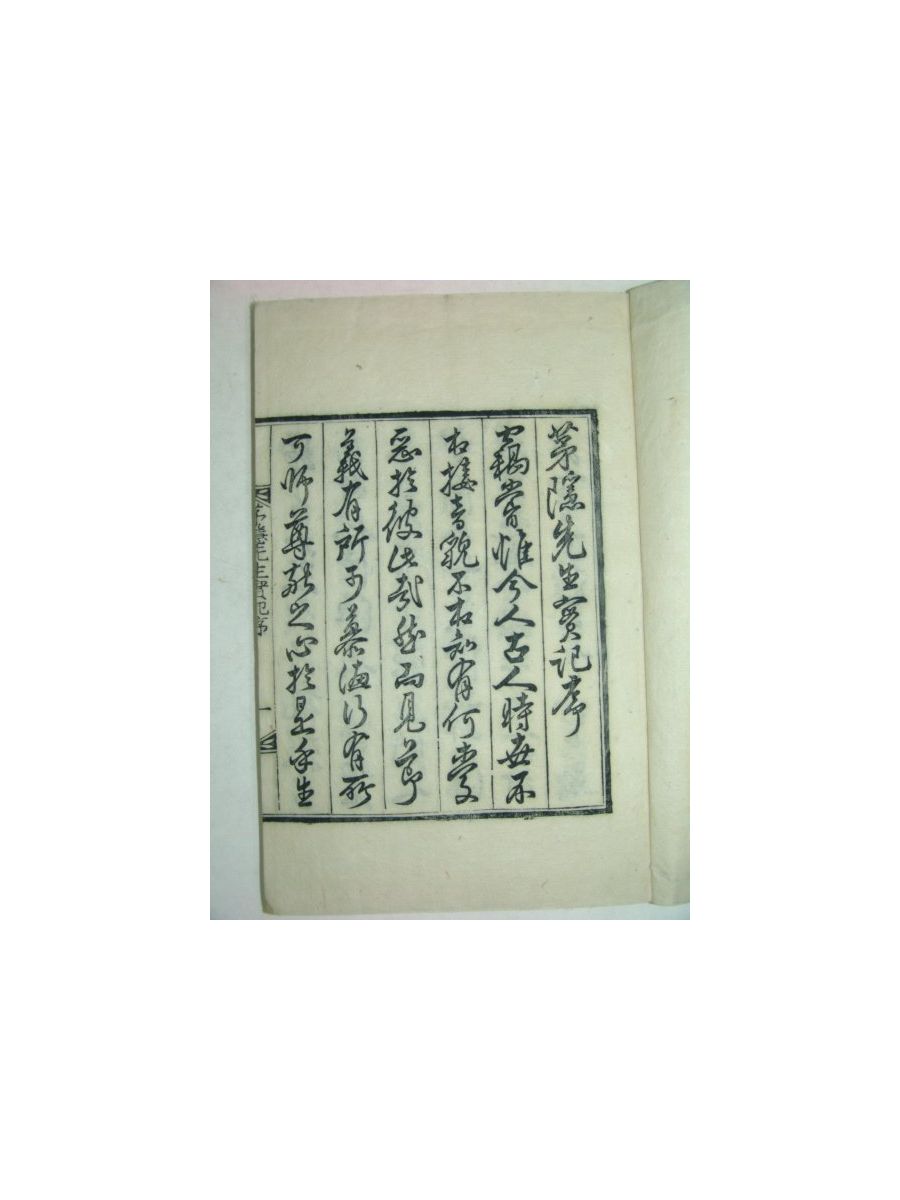 茅隱先生實記序
竊嘗惟今人古人時世不
相接音貌不相知有何愛
惡於彼此哉然而見節
義有所可慕德行有所
可師尊敬之心於是乎生
茅隱先生實記序 一